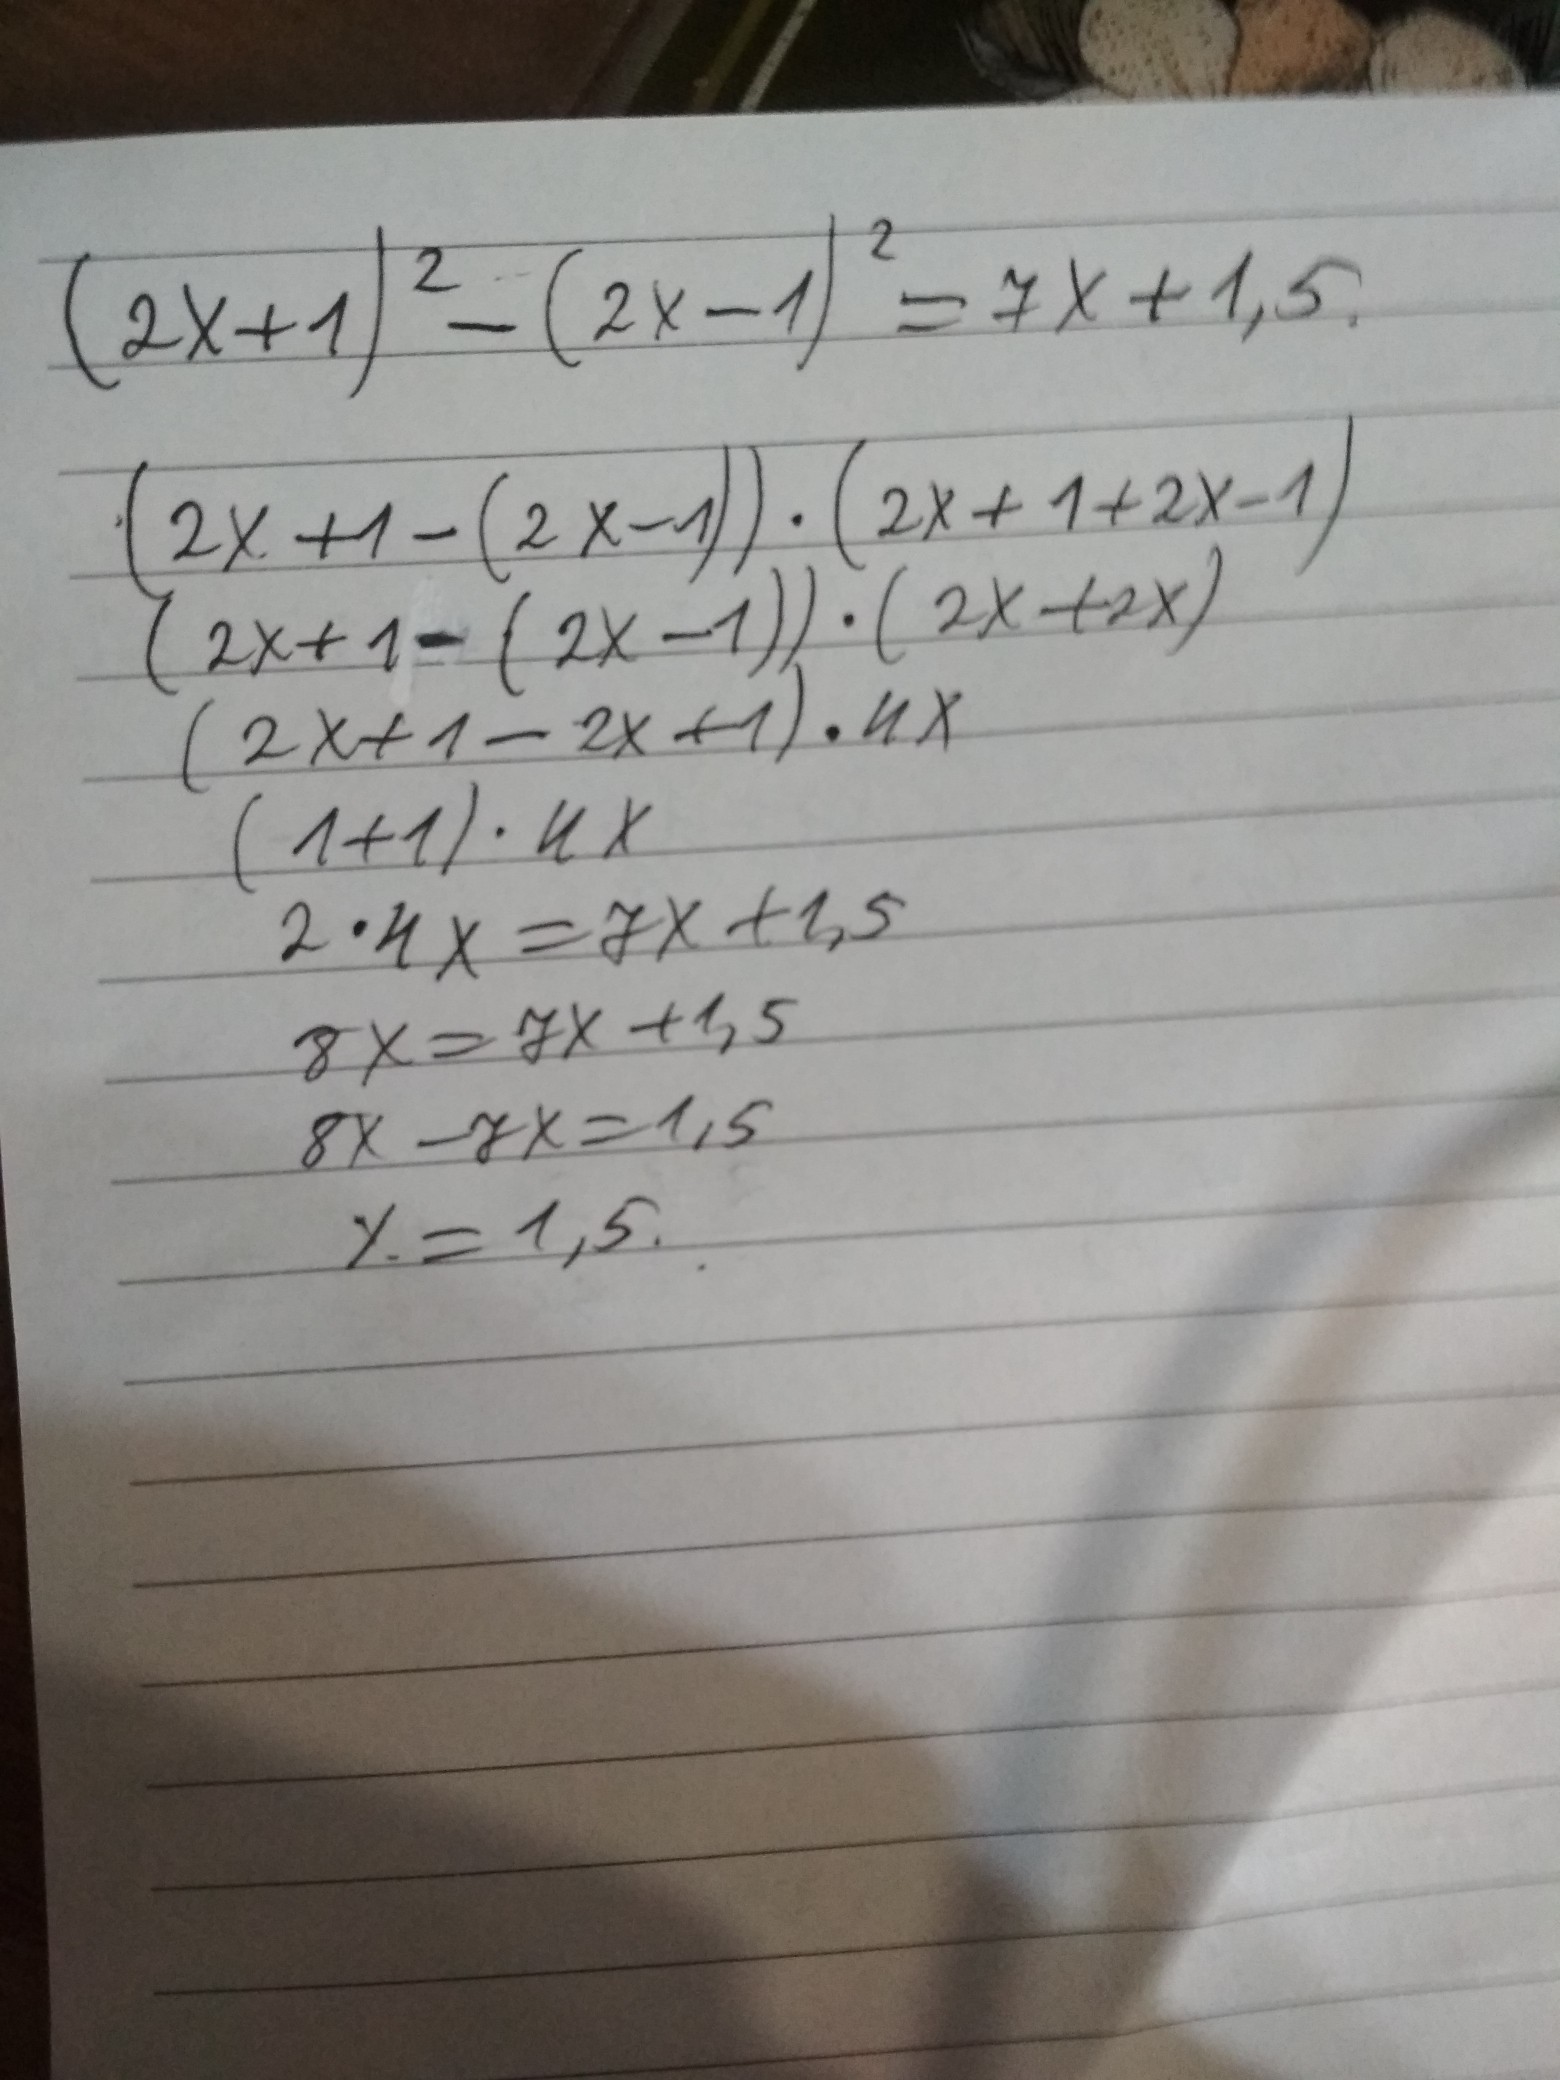 (2x+1)² - (2x-1)² = 7x+1,5.
(2x+1-(2x-1))·(2x+1+2x-1)
(2x+1-(2x-1))·(2x+2x)
(2x+1-2x+1)·4x
(1+1)·4x
2·4x=7x+1,5
8x=7x+1,5
8x-7x=1,5
x=1,5.